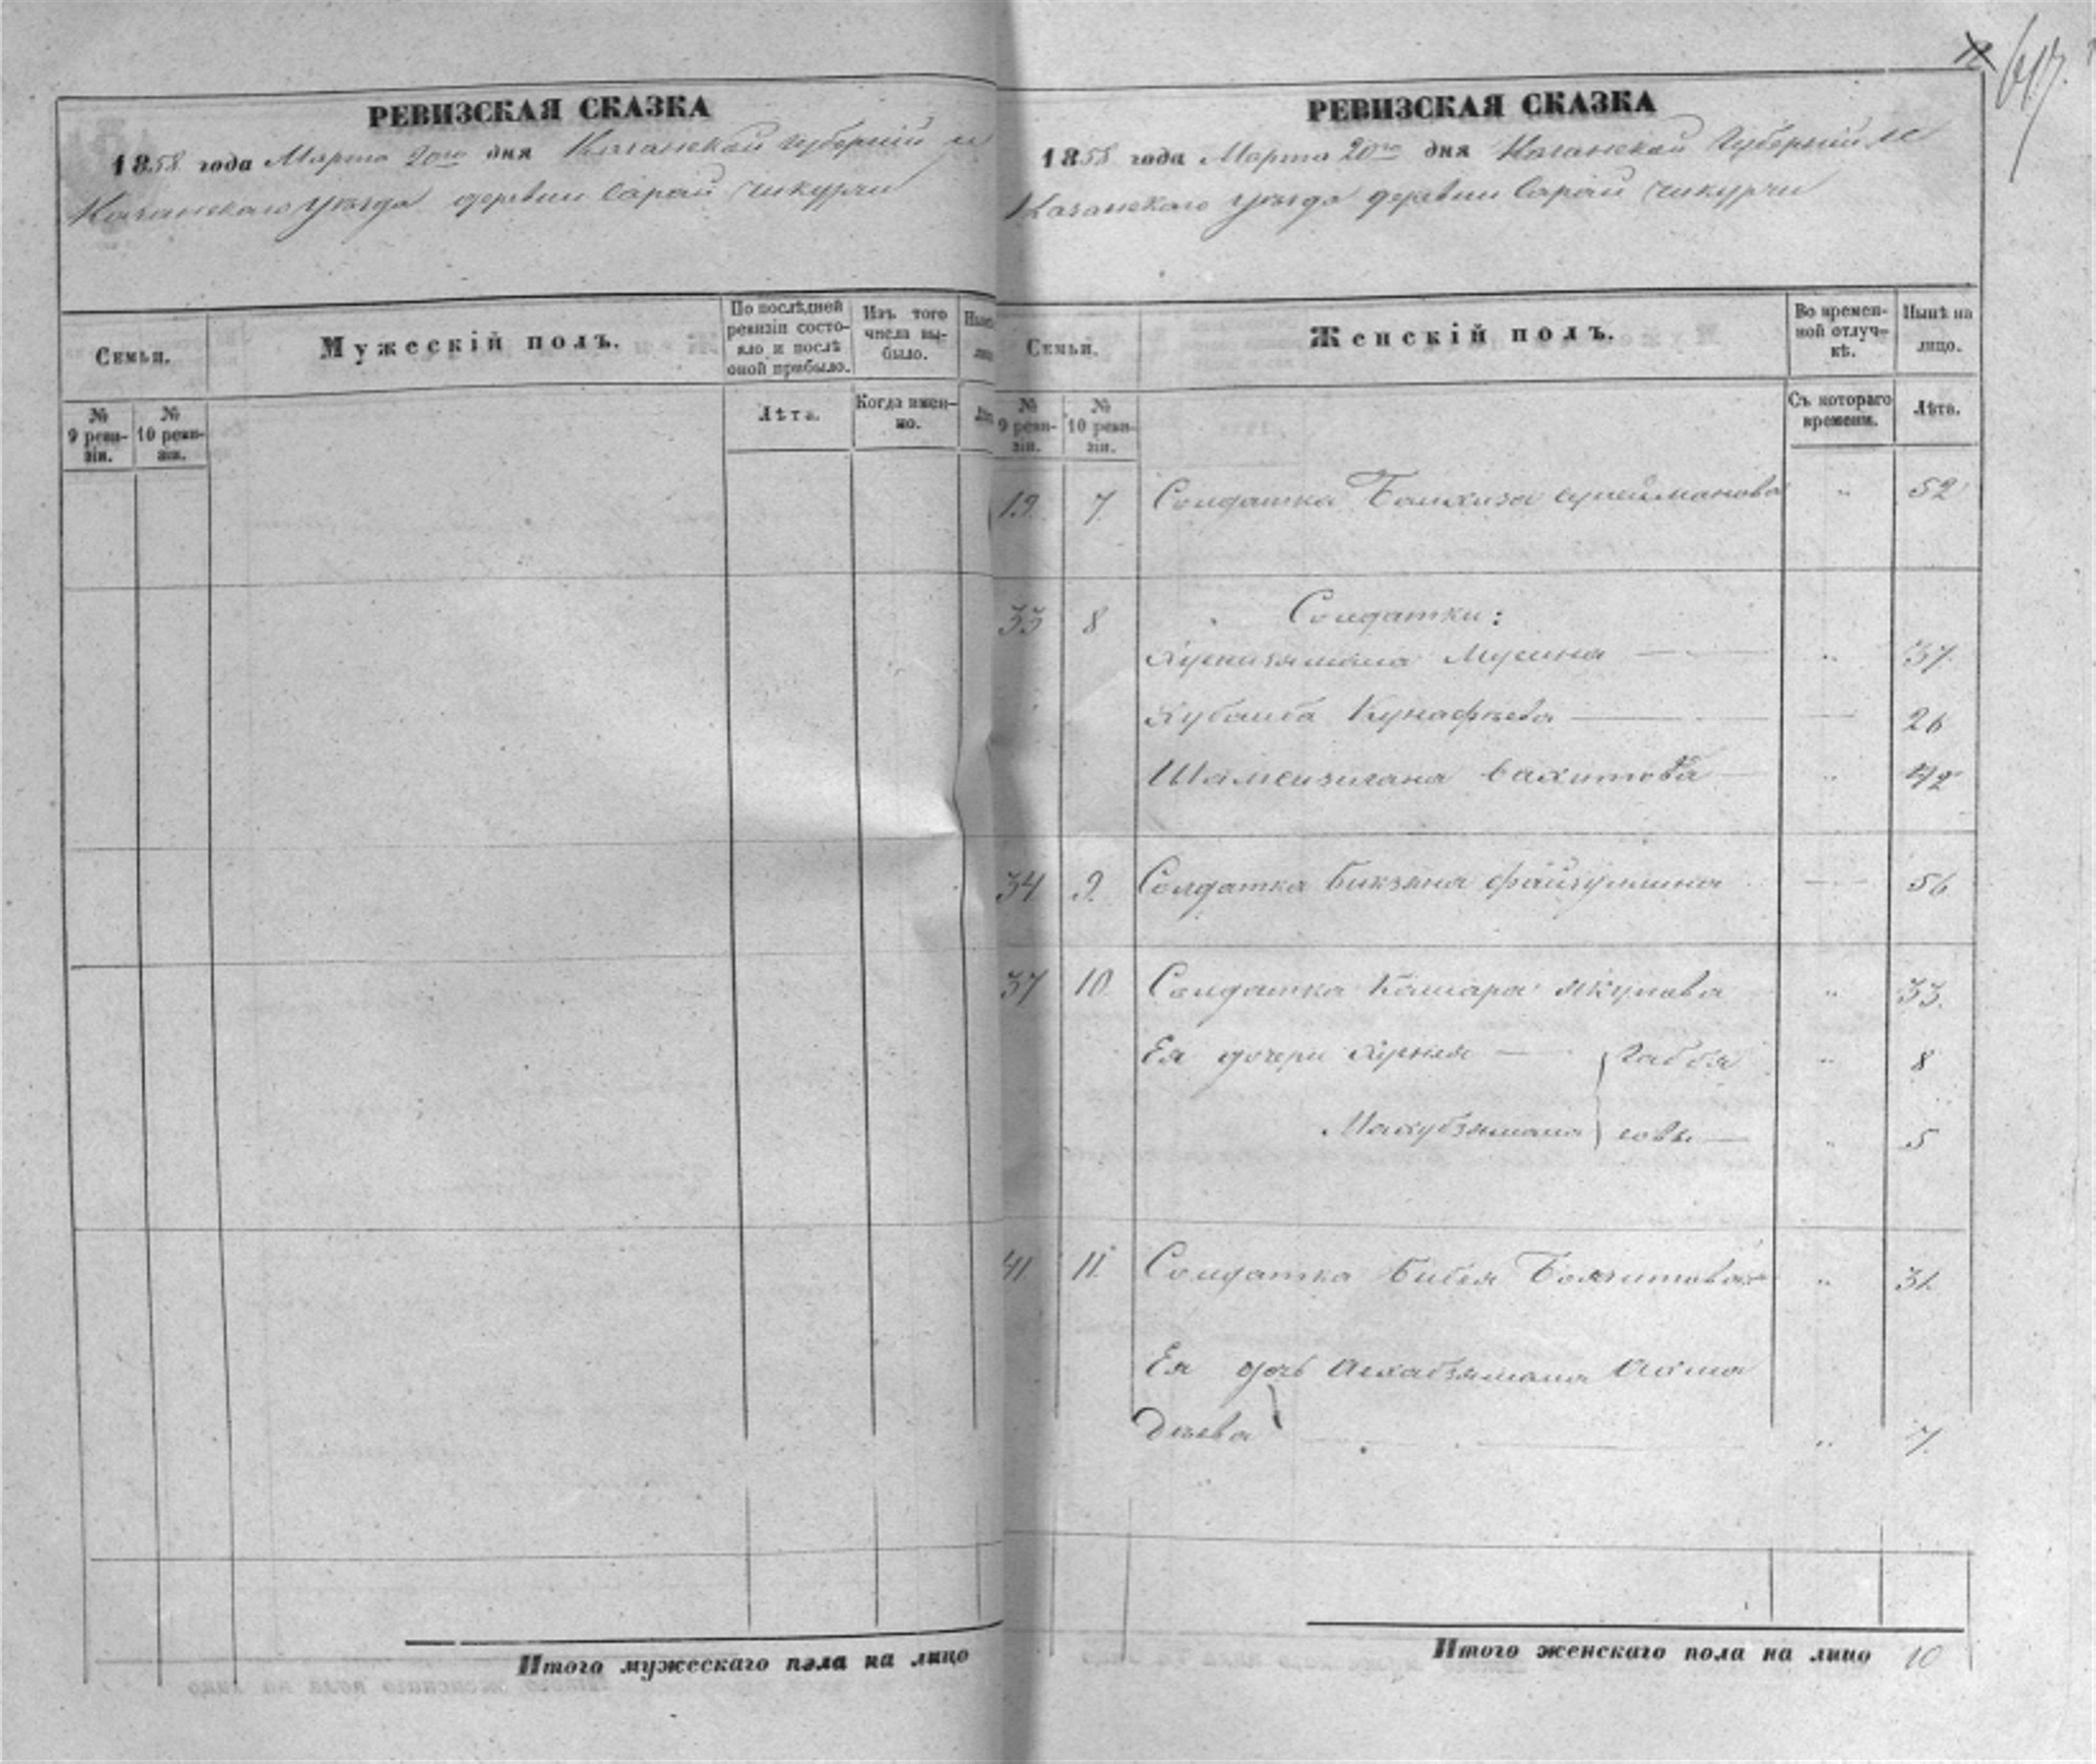 12 617.
РЕВИЗСКАЯ СКАЗКА
1858 года Марта 20го дня Казанской Губерніи и
Казанскаго уѣзда деревни Сарай Чикурчи
Семьи.
Мужескій полъ.
По послѣдней ревизіи состояло и послѣ оной прибыло.
Изъ того числа выбыло.
№ 9 ревизіи.
№ 10 ревизіи.
Лѣта.
Когда именно.
Итого мужескаго пола на лицо
РЕВИЗСКАЯ СКАЗКА
1858 года Марта 20го дня Казанской Губерніи и
Казанскаго уѣзда деревни Сарай Чикурчи
Семьи.
Женскій полъ.
Во временной отлучкѣ.
Нынѣ на лицо.
№ 9 ревизіи.
№ 10 ревизіи.
Съ котораго времени.
Лѣта.
19. 7. Солдатка сулейманова „ 52
33 8 Солдатки:
Мусина „ 37.
Хубаиба Кунафѣева 26
Шамсизигана Вахитова „ 42
34 9. Солдатка Бикзяна Файзуллина 56
37 10. Солдатка Камара Якупова „ 33.
Ея дочери Хусния Габбя „ 8
Махубзямала совы „ 5
41. 11. Солдатка Бибея Бояzитова „ 31.
Ея дочь Асхабзямала Ахма
дѣева „ 7.
Итого женскаго пола на лицо 10